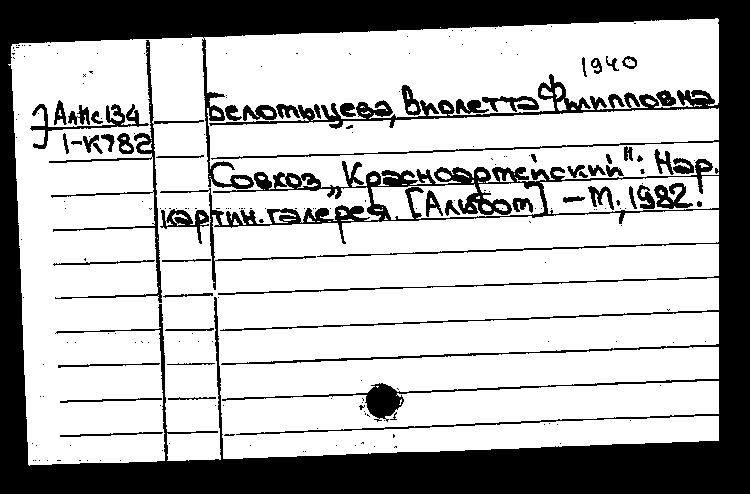 1940
АлИс134
1-К782
Белотыцева, Виолетта Филипповна
Совхоз „Красноармейский": Нар.
картин. галерея. [Альбом]. — М., 1982.